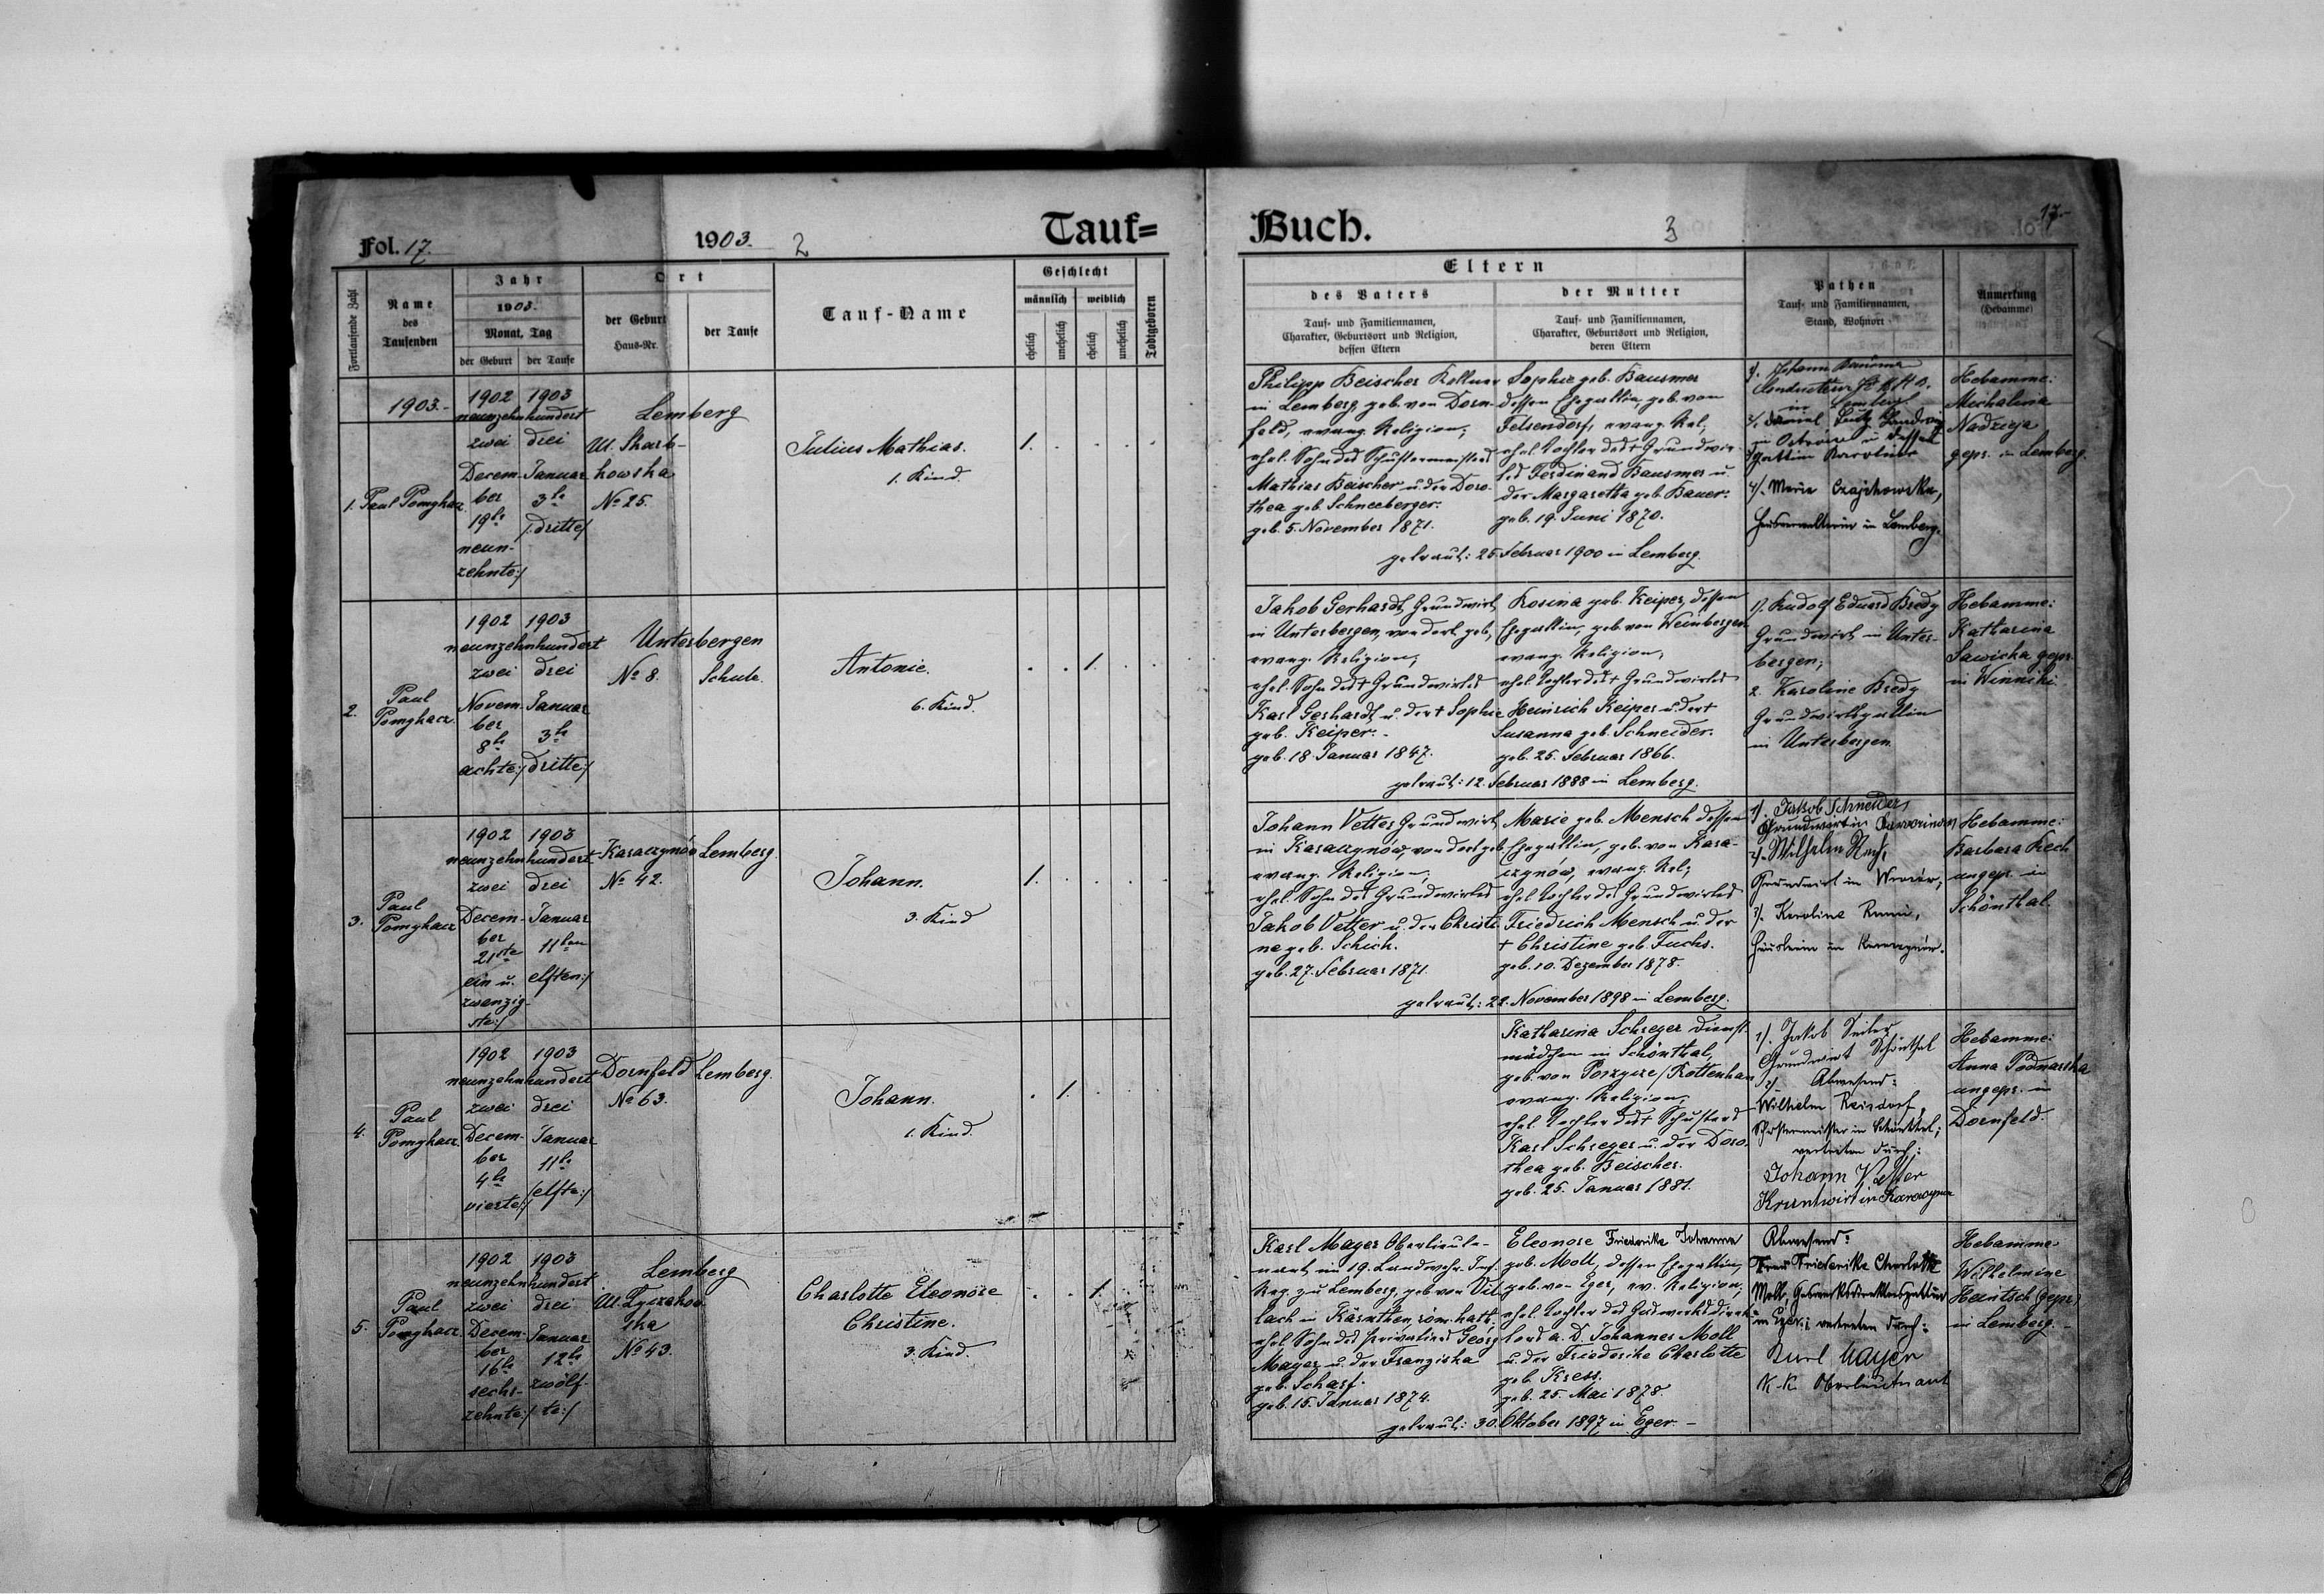 Fol. 17.
1903.
2
Tauf=
Fortlaufende Zahl
Name
des
Taufenden
Jahr
1903.
Monat, Tag
der Geburt
der Taufe
Ort
der Geburt
Haus-Nr.
der Taufe
Tauf-Name
Geschlecht
männlich
weiblich
ehelich
unehelich
ehelich
unehelich
Todtgeboren
1903.-
1902 1903
neunzehnhundert
zwei drei
Decem- Januar
ber 3te
19te /:dritte:/
neun-
zehnte:/
1. Paul Pomykacz
Lemberg
Ul. Skarb-
kowska
No 25.
Julius Mathias.
1. Kind.
1.
2.
Paul
Pomykacz.
1902 1903
neunzehnhundert
zwei drei
Novem- Januar
ber
8te 3te
achte:/ dritte:/
Unterbergen
No 8. Schule.
Antonie.
6. Kind.
1.
3.
Paul
Pomykacz
1902 1903
neunzehnhundert
zwei drei
Decem- Januar
ber
21ste 11ten
ein u. elften:/
zwanzig-
ste:/
Karaczynów Lemberg.
No 42.
Johann.
3. Kind
1.
4.
Paul
Pomykacz
1902 1903
neunzehnhundert
zwei drei
Decem- Januar
ber 11te
4te /elfte:/
vierte:/
Dornfeld Lemberg.
No 63.
Johann.
1. Kind.
1.
5.
Paul
Pomykacz
1902 1903
neunzehnhundert
zwei drei
Decem- Januar
ber
16te 12te
sechs- zwölf-
zehnte:/ te:/
Lemberg
Ul. Łyczakow
ska
No 43.
Charlotte Eleonore
Christine.
3. Kind.
1.
Buch.
3
17-
Eltern
des Vaters
Tauf- und Familiennamen,
Charakter, Geburtsort und Religion,
dessen Eltern
der Mutter
Tauf- und Familiennamen,
Charakter, Geburtsort und Religion,
deren Eltern
Pathen
Tauf- und Familiennamen,
Stand, Wohnort
Anmerkung
(Hebamme)
Philipp Beischer Kellner
in Lemberg, geb. von Dorn-
feld, evang. Religion;
ehel. Sohn des Schustermeisters
Mathias Beischer u. der Doro-
thea geb. Schneeberger.
geb. 5. November 1871.
Sophie geb. Bausmer
dessen Ehegattin, geb. von
Felsendorf, evang. Rel;
ehel. Tochter des + Grundwir-
tes Ferdinand Bausmer u.
der Margaretha geb. Bauer.
geb. 19. Juni 1870.
getraut: 25. Februar 1900 in Lemberg.
1/. Johann
in Lemberg
Gattin Karoline
4/. Marie Czajkowska,
Hausverwalterin in Lemberg.
Hebamme:
Michalina
Nadzieja
gepr. in Lemberg.
Jakob Gerhardt, Grundwirt
in Unterbergen, von dort geb,
evang. Religion;
ehel. Sohn des + Grundwirtes
Karl Gerhardt u. der + Sophie
geb. Keiper.-
geb. 18. Januar 1847.
Rosina geb. Keiper, dessen
Ehegattin, geb. von Weinbergen
evang. Religion,
ehel. Tochter des + Grundwirtes
Heinrich Keiper u. der +
Susanna geb. Schneider.
geb. 25. Februar 1866.
getraut: 12. Februar 1888 in Lemberg.
1/. Rudolf Eduard Bredy
Grundwirt in Unter-
bergen;
2. Karoline Bredy
Grundwirtsgattin
in Unterbergen.
Hebamme:
Katharina
Sawicka gepr.
in Winniki.
Johann Vetter Grundwirt
in Karaczynów, von dort geb.
evang. Religion;
ehel. Sohn des Grundwirtes
Jakob Vetter u. der Christi-
ne geb. Schick.
geb. 27. Februar 1871.
Marie geb. Mensch dessen
Ehegattin, geb. von Kara-
czynów, evang. Rel;
ehel. Tochter des Grundwirtes
Friedrich Mensch u. der
+ Christine geb. Fuchs.
geb. 10. Dezember 1878.
getraut: 22. November 1898 in Lemberg.
1/. Jakob Schneider,
Grundwirt in
2/. Wilhelm
Grundwirt in
3/. Karolina
in Karaczynów.
Hebamme:
Barbara Kech
ungepr. in
Schönthal.
Katharina Schreger Dienst-
mädchen in Schönthal,
geb. von Porzycze/Rottenhan
evang. Religion;
ehel. Tochter des + Schusters
Karl Schreger u. der Doro-
thea geb. Beischer.
geb. 25. Januar 1881.
1/. Jakob Seiler
Grundwirt Schönthal
2/. Abwesend:
Wilhelm Reisdorf,
Schustermeister in Schönthal;
vertreten durch:
Johann Vetter
Kruntwirt in Karaczynow
Hebamme:
Anna Podnarska
ungepr. in
Dornfeld.
Karl Mayer Oberlieute-
nant im 19. Landwehr. Inf.
Reg. zu Lemberg, geb. von Vil-
lach in Kärnthen, röm. kath.
ehel. Sohn des Privatiers Georg
Mayer u. der Franziska
geb. Scharf.
geb. 15. Januar 1874.
Eleonore Friederike Johanna
geb. Moll, dessen Ehegattin,
geb. von Eger, ev. Religion;
ehel. Tochter des Gaswerksdirek-
tors a. D. Johannes Moll
u. der Friederike Charlotte
geb. Kress.
geb. 25. Mai 1878.
getraut: 30. Oktober 1897 in Eger.-
Abwesend:
Frau Friederike Charlotte
Moll, Gaswerksdirektorsgattin
in Eger; vertreten durch:
Karl Mayer
K. K. Oberleutnant
Hebamme
Wilhelmine
Heintsch (gepr.)
in Lemberg.-